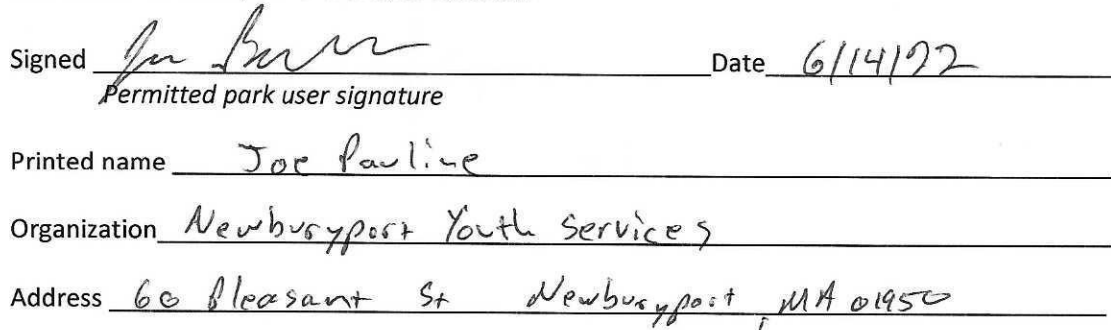 Signed Date 6/14/22
Permitted park user signature
Printed name Joe Pauline
Organization Newburyport Youth Services
Address 60 Pleasant St Newburyport, MA 01950